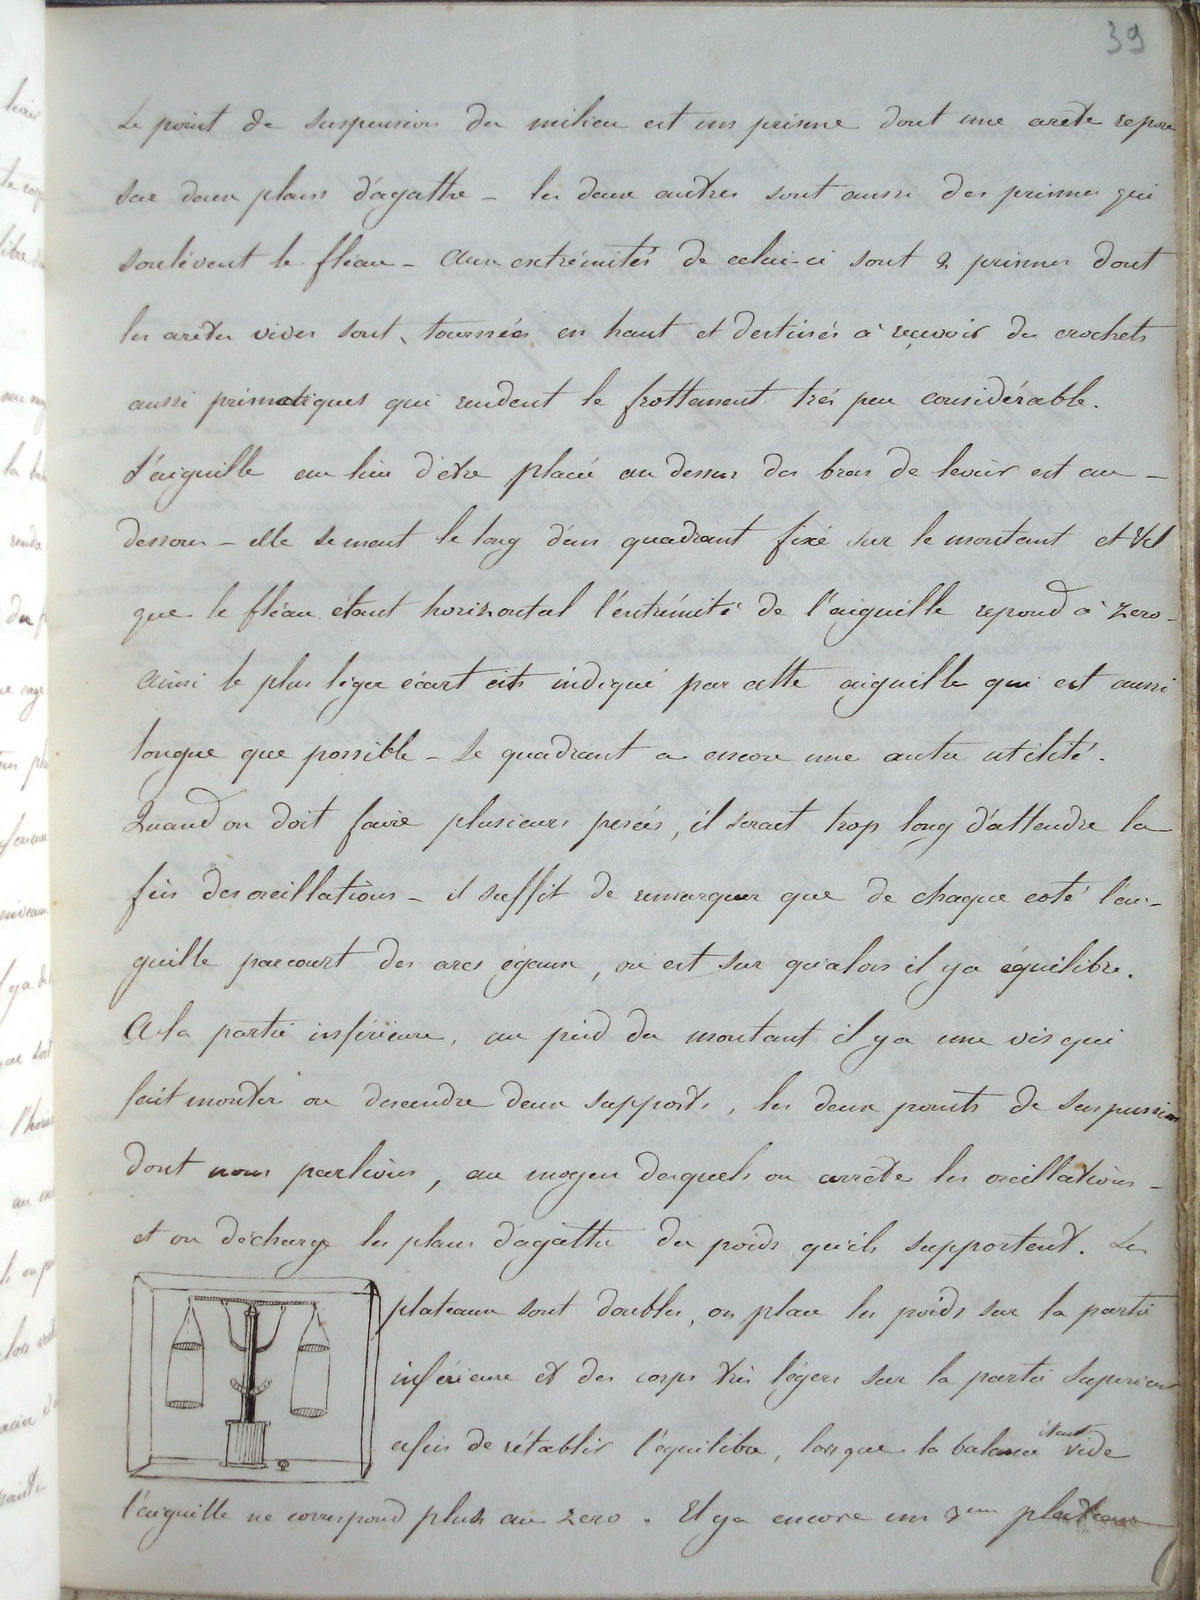 39
Le point de suspension du milieu est un prisme dont une arête repose
sur deux plans d'agathe – les deux autres sont aussi des prismes qui
soulèvent le fléau – Aux extrémités de celui-ci sont 2 prismes dont
les arêtes vives sont tournées en haut et destinés à reçevoir des crochets
aussi prismatiques qui rendent le frottement très peu considérable.
L'aiguille au lieu d'être placée au dessus des bras de levier est au –
dessous – elle se meut le long d'un quadrant fixé sur le montant et tel
que le fléau étant horizontal l'extrémité de l'aiguille repond à zero –
Ainsi le plus léger écart est indiqué par cette aiguille qui est aussi
longue que possible – Le quadrant a encore une autre utilité.
Quand on doit faire plusieurs pesées, il serait trop long d'attendre la
fin des oscillations – il suffit de remarquer que de chaque coté l'ai-
guille parcourt des arcs égaux, on est sur qu'alors il y a équilibre.
A la partie inférieure, au pied du montant il y a une vis qui
fait monter ou descendre deux supports, les deux points de suspension
dont nous parlions, au moyen desquels on arrête les oscillations –
et on décharge les plans d'agathe du poids qu'ils supportent. Les
plateaux sont doubles, on place les poids sur la partie
inférieure et des corps très légers sur la partie superieure
afin de rétablir l'équilibre, lorsque la balance étant vide
l'aiguille ne correspond plus au zero. Il y a encore un 3eme plateau